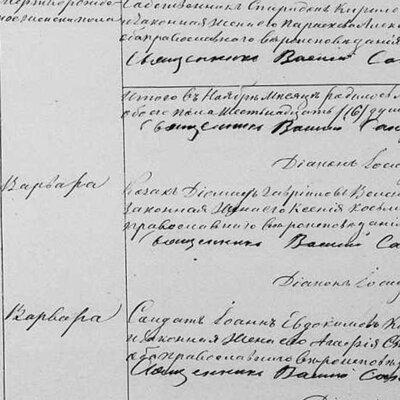 Мертворожде-
ное женск. пола
Собственникъ Спиридонъ Кирило
и законная жена его Параскева Алек
оба православнаго вѣроисповѣданія
Священникъ Василій Са
Итого въ Ноябрѣ Мѣсяцѣ родилось
обоего пола Шестьнадцать /16/ душъ
Священникъ Василій Са
Діаконъ Іоа
Варвара
Козакъ Гавріиловъ
законная жена его Ксенія Козьм
православнаго вѣроисповѣданія
Священникъ Василій Са
Діаконъ Іоа
Варвара
Солдатъ Іоаннъ Евдокимовъ
и законная жена его Агафія
оба православнаго вѣроисповѣд
Священникъ Василій Сав